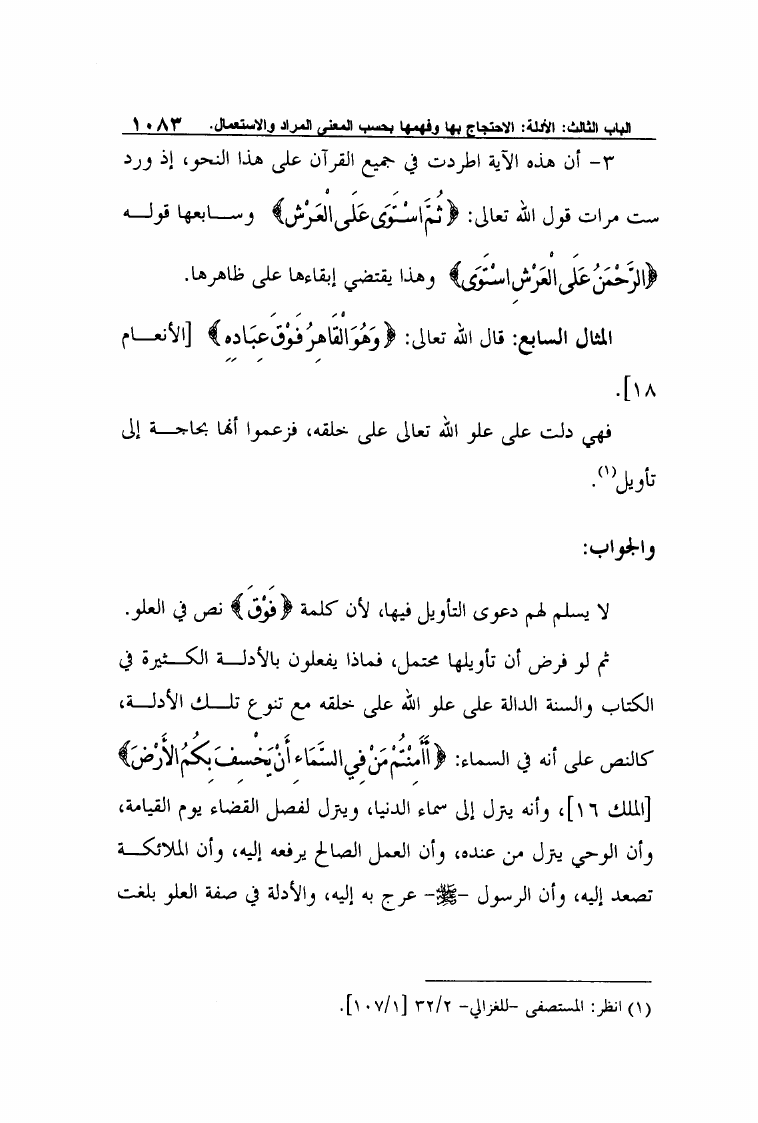 الباب الثالث: الأدلة: الاحتجاج بها وفهمها بحسب المعنى المراد والاستعمال. ١٠٨٣
٣- أن هذه الآية اطردت في جميع القرآن على هذا النحو، إذ ورد
ست مرات قول الله تعالى: ﴿ثُمَّ اسْتَوَى عَلَى الْعَرْشِ﴾ وسابعها قوله
﴿الرَّحْمَنُ عَلَى الْعَرْشِ اسْتَوَى﴾ وهذا يقتضي إبقاءها على ظاهرها.
المثال السابع: قال الله تعالى: ﴿وَهُوَ الْقَاهِرُ فَوْقَ عِبَادِهِ﴾ [الأنعام
١٨].
فهي دلت على علو الله تعالى على خلقه، فزعموا أنها بحاجة إلى
تأويل(١).
والجواب:
لا يسلم لهم دعوى التأويل فيها، لأن كلمة ﴿فَوْقَ﴾ نص في العلو.
ثم لو فرض أن تأويلها محتمل، فماذا يفعلون بالأدلة الكثيرة في
الكتاب والسنة الدالة على علو الله على خلقه مع تنوع تلك الأدلة،
كالنص على أنه في السماء: ﴿أَأَمِنْتُمْ مَنْ فِي السَّمَاءِ أَنْ يَخْسِفَ بِكُمُ الأَرْضَ﴾
[الملك ١٦]، وأنه ينزل إلى سماء الدنيا، وينزل لفصل القضاء يوم القيامة،
وأن الوحي ينزل من عنده، وأن العمل الصالح يرفعه إليه، وأن الملائكة
تصعد إليه، وأن الرسول -ﷺ- عرج به إليه، والأدلة في صفة العلو بلغت
(١) انظر: المستصفى -للغزالي- ٣٢/٢ [١٠٧/١].